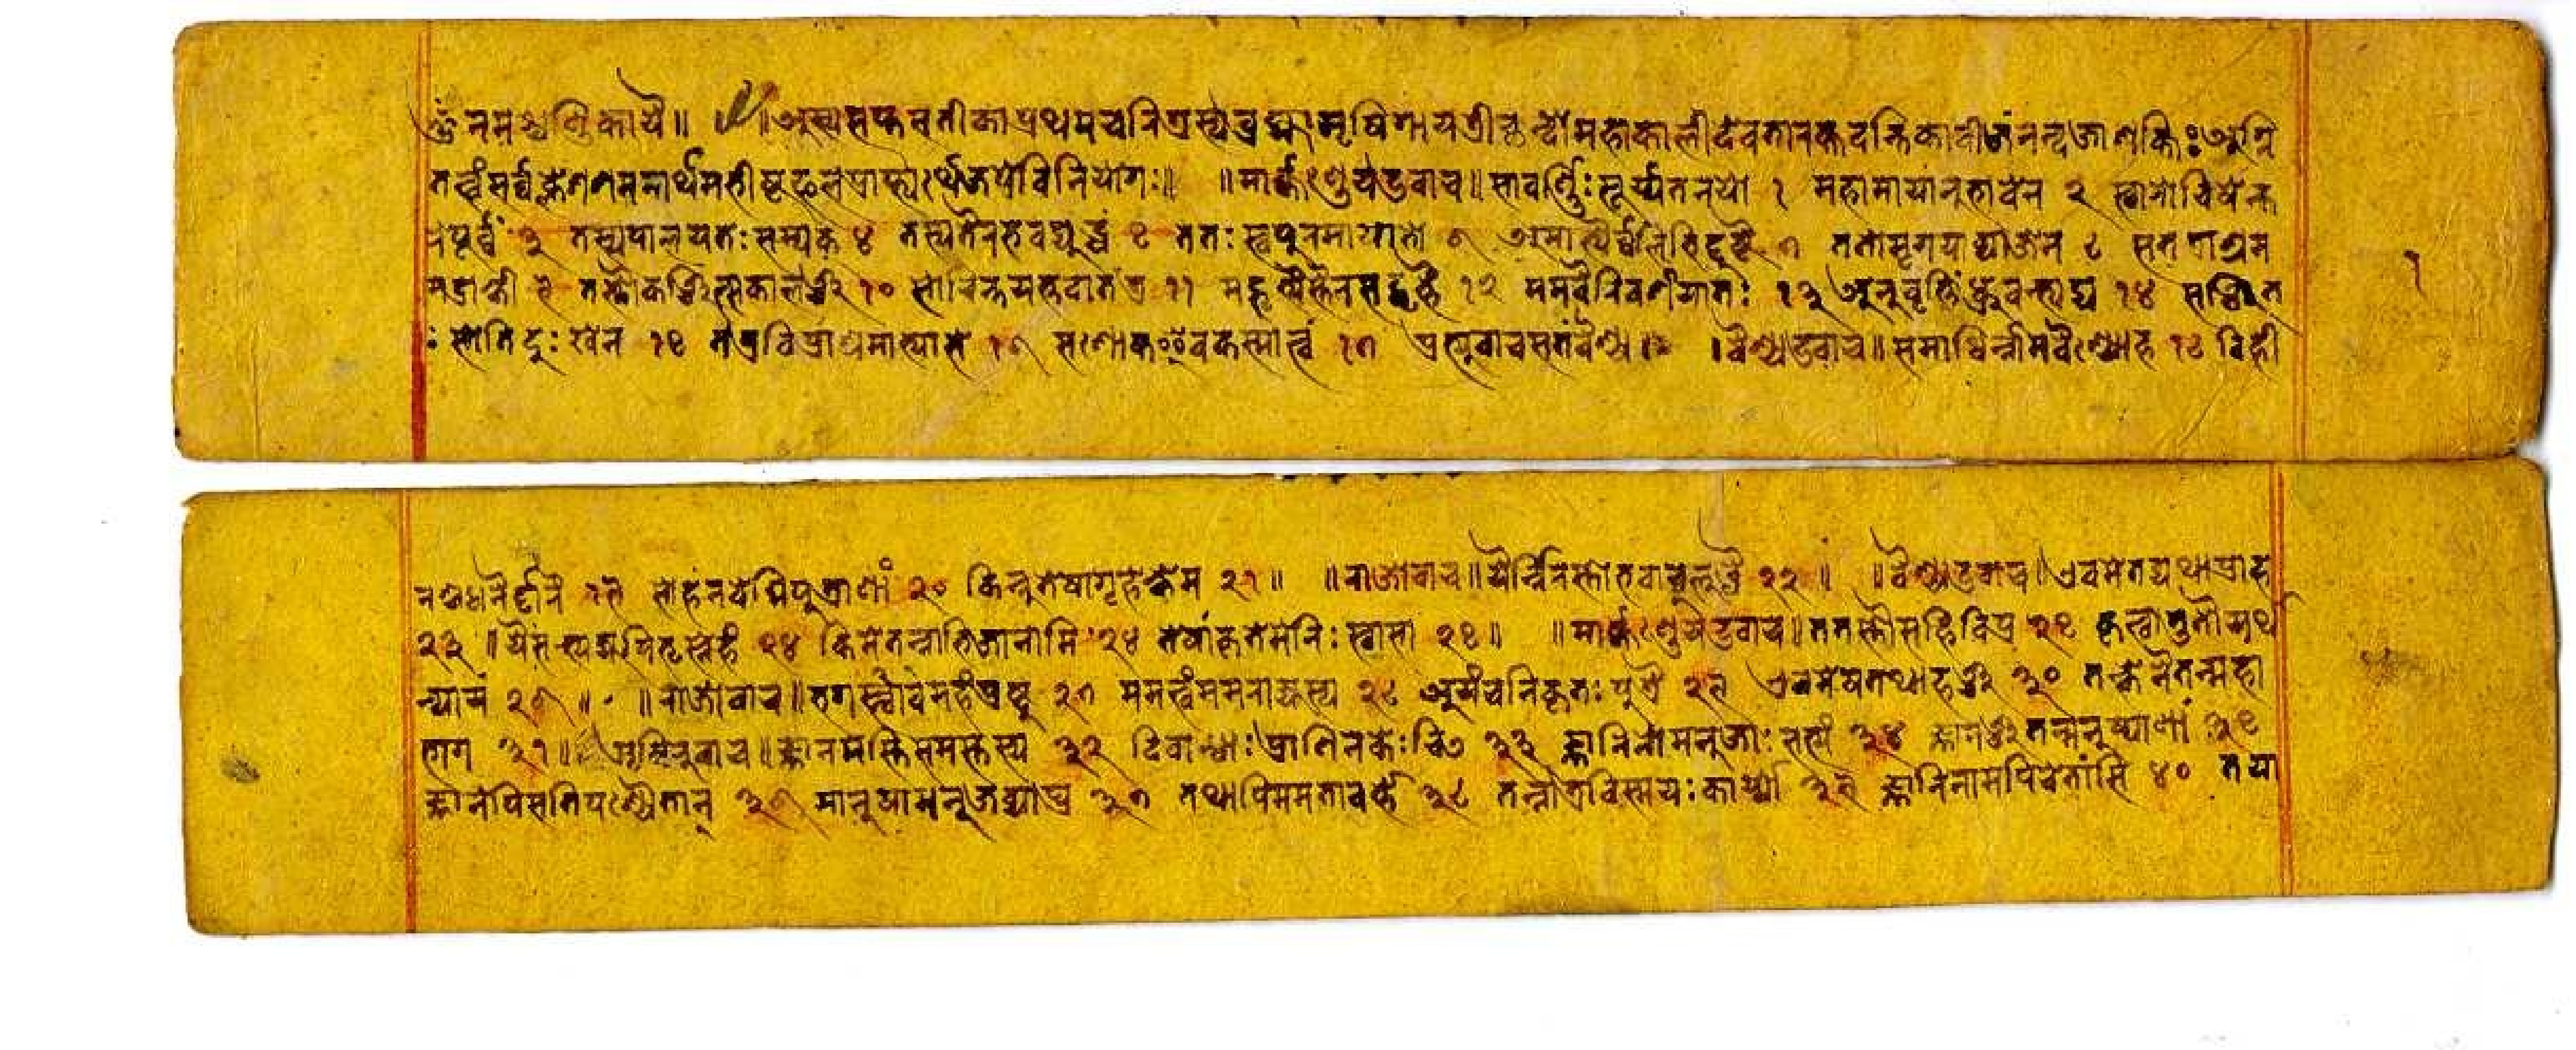 ॐ नमश्चण्डिकायै॥ ॥अस्य सप्तसतीका प्रथमचरित्रस्य ब्रह्मा ऋषि गायत्रीछन्दो महाकाली देवता रक्तदन्तिका वीजं नन्दजा शक्तिः अग्नि
तत्त्वं सर्व्वक्लेशशमनार्थमभीष्टफलप्राप्त्यर्थे जपे विनियोगः॥ ॥मार्क्कण्डेय उवाच॥ सावर्ण्णिः सूर्य्यतनयो १ महामायानुभावेन २ स्वारोचिषेन्त
रेपूर्व्वं ३ तस्य पालयतः सम्यक् ४ तस्य तैरभवद्युद्धं ५ ततः स्वपुरमायातो ६ अमात्यैर्व्वलिभिर्दुष्टै ७ ततो मृगयाव्याजेन ८ स तत्राश्रम
मद्राक्षी ९ तस्थौ कञ्चित्सकालञ्च १० सोचिन्तयत्तदा तत्र ११ मद्भृत्यैस्तैरसद्वृत्तै १२ मम वैरिवशं यातः १३ अनुवृत्तिं ध्रुवन्त्यद्य १४ सञ्चित
ः सोतिदुःखेन १५ तत्र विप्राश्रमाभ्यासे १६ सशोक इव कस्मात्त्वं १७ प्रत्युवाच स तं वैश्य॥ ॥वैश्य उवाच॥ समाधिर्न्नाम वैश्योह १८ विही
नश्च धनैर्द्दारै १९ सोहं न वेद्मि पुत्राणां २० किन्नु तेषां गृहे क्षेम २१॥ ॥राजोवाच॥ यैर्न्निरस्तो भवाल्लुब्धै २२॥ ॥वैश्य उवाच॥ एवमेतद्यथा प्राह
२३॥ यैः संत्यज्य पितृस्नेहं २४ किमेतन्नाभिजानामि २५ तेषां कृते मे निःस्वासा २५॥ ॥मार्क्कण्डेय उवाच॥ ततस्तौ सहितौ विप्र २५ कृत्वा तु तौ यथा
न्यायं २६॥ ॥राजोवाच॥ भगवंस्त्वामहं प्रष्टु २७ ममत्वं मम राज्यस्य २८ अयं च निकृतः पुत्रै २९ एवमेष तथाहञ्च ३० तत्केनैतन्महा
भाग ३१॥ ॥ऋषिरुवाच॥ ज्ञानमस्ति समस्तस्य ३२ दिवान्धाः प्राणिन केचि ३३ ज्ञानिनो मनुजाः सत्यं ३४ ज्ञानञ्च तन्मनुष्याणां ३५
ज्ञानेपि सति पश्यैतान् ३६ मानुषा मनुजव्याघ्र ३७ तथापि ममतावर्त्ते ३८ तन्नात्र विस्मयः कार्य्यो ३९ ज्ञानिनामपि चेतांसि ४० तया